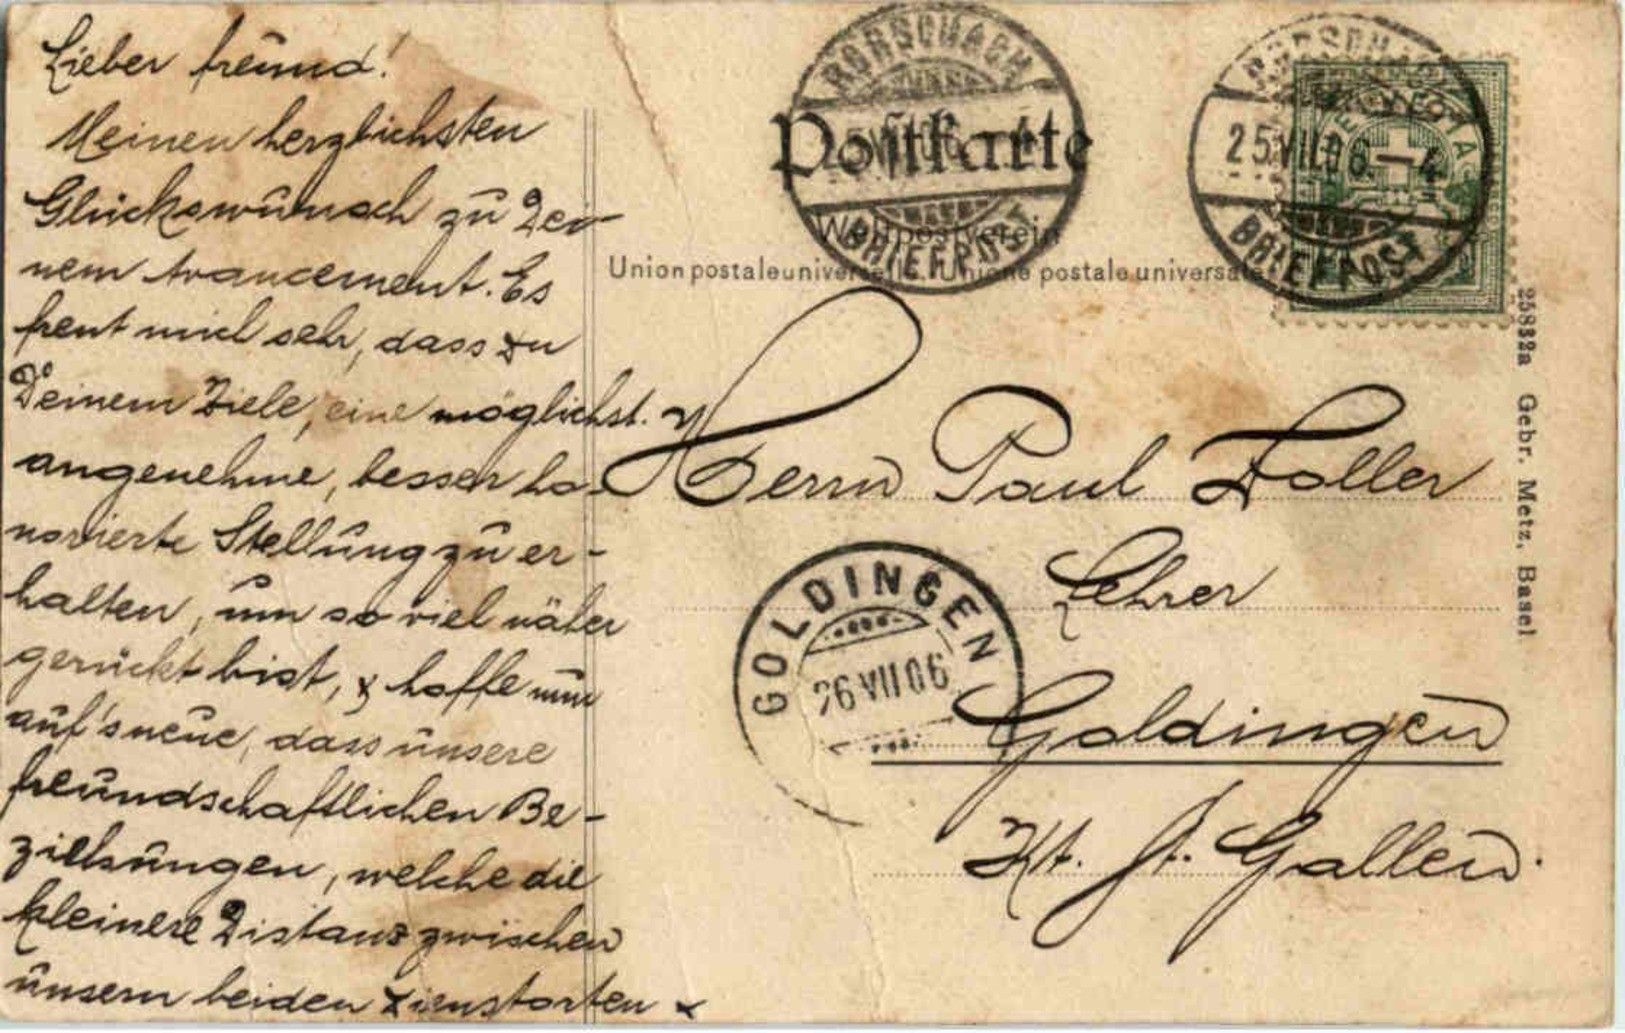 Lieber Freund!
Meinen herzlichsten
Glückswunsch zu Dei-
nem Avancement. Es
freut mich sehr, dass Du
Deinem Ziele, eine möglichst
angenehme, besser ho-
norierte Stellung zu er-
halten, um so viel näher
gerückt bist, & hoffe nun
auf's neue, dass unsere
freundschaftlichen Be-
ziehungen, welche die
kleinere Distanz zwischen
unsern beiden Dienstorten &
RORSCHACH
25.VII.06.-4
BRIEFPOST
Postkarte
Weltpostverein
Union postale universelle. Unione postale universale
RORSCHACH
25.VII.06.-4
BRIEFPOST
Herrn Paul Zoller
Lehrer
Goldingen
Kt. St. Gallen.
GOLDINGEN
26 VII 06
25832a Gebr. Metz, Basel